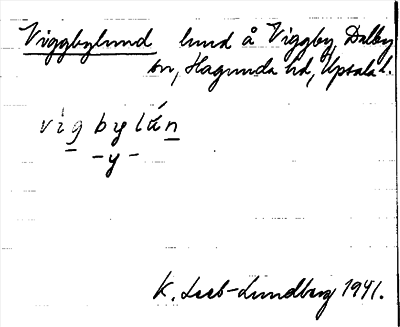 Viggbylund lund å Viggby, Dalby
sn, Hagunda hd, Upsala l.
vi̇g bylún
-y-
K. Leeb-Lundberg 1941.